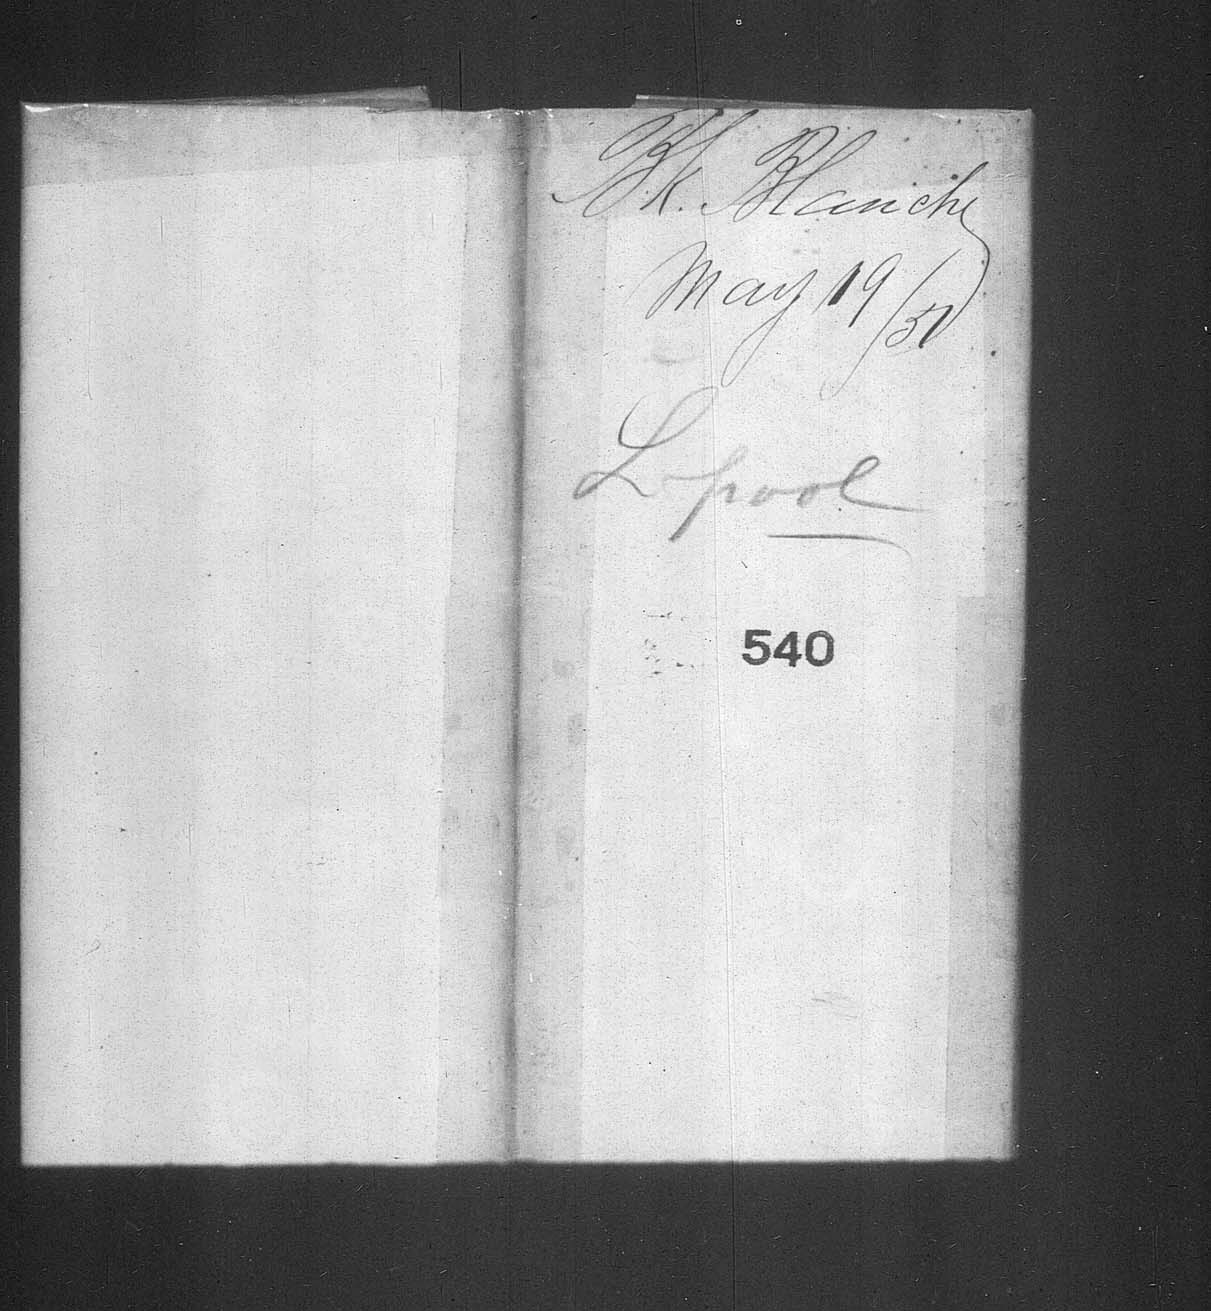 Bk. Blanche
May 19/51
L'pool
540